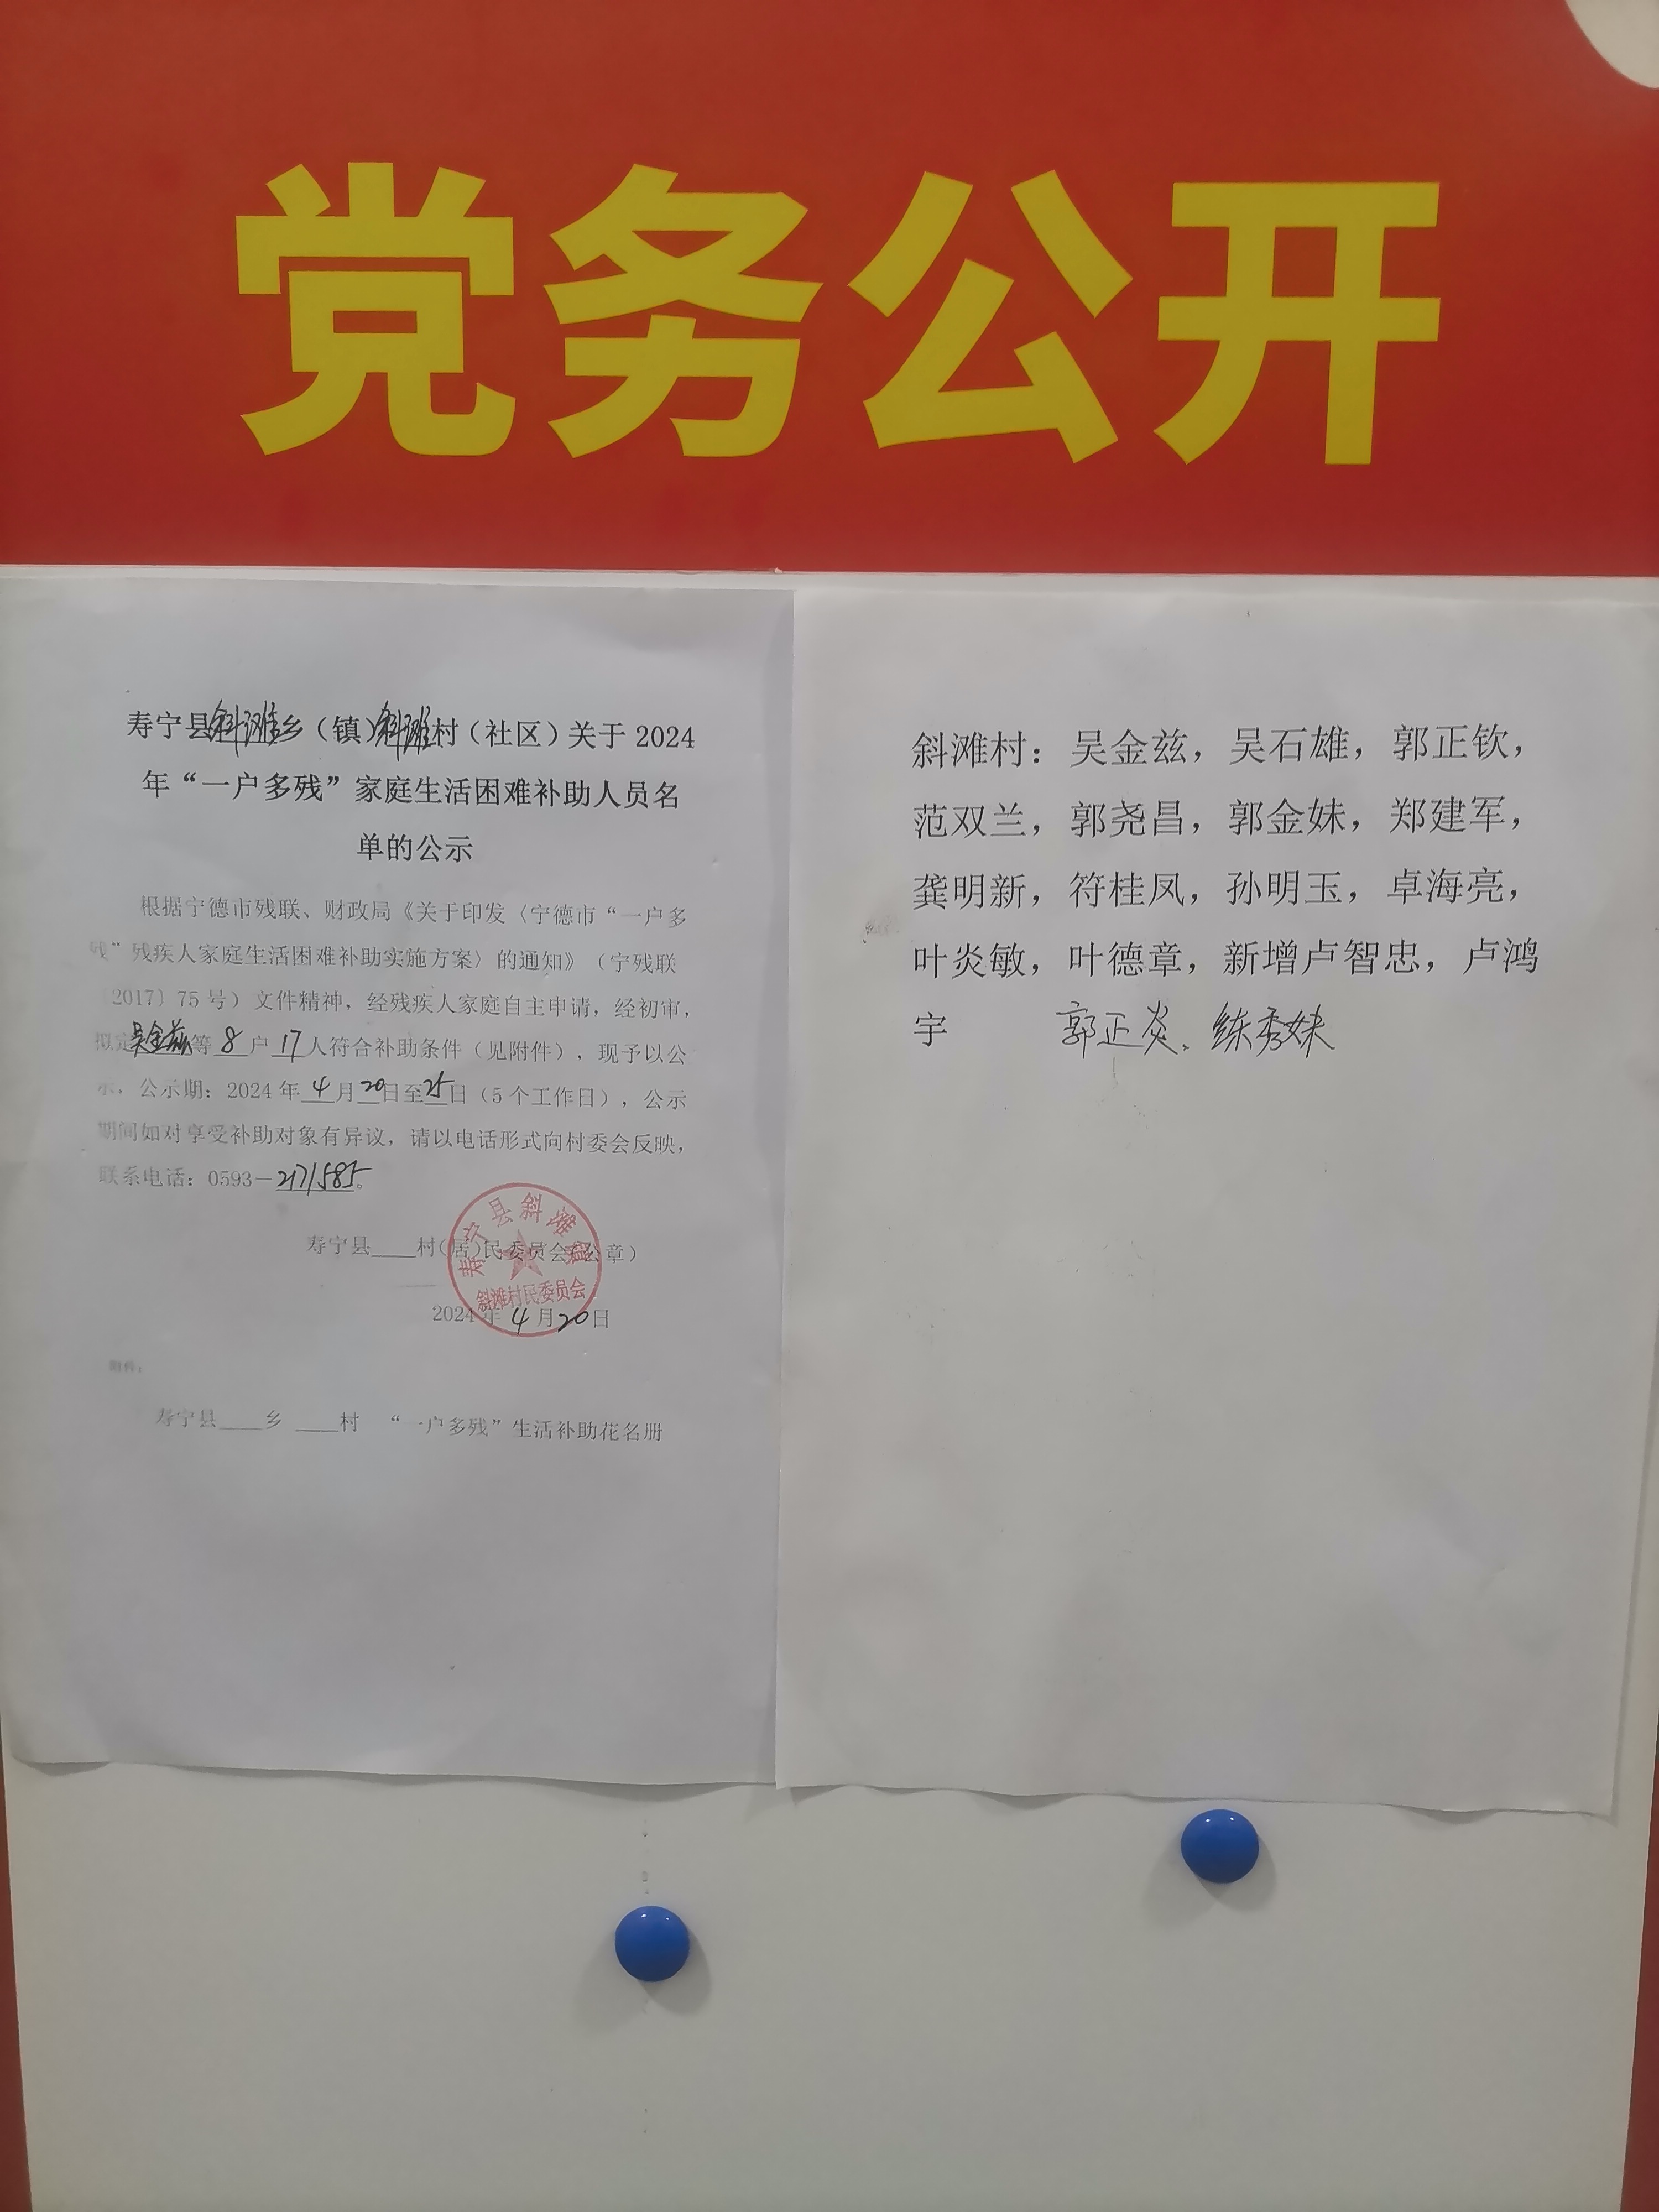 党务公开
寿宁县斜滩乡（镇）斜滩村（社区）关于 2024
年“一户多残”家庭生活困难补助人员名
单的公示
根据宁德市残联、财政局《关于印发〈宁德市“一户多
残”残疾人家庭生活困难补助实施方案〉的通知》（宁残联
〔2017〕75 号）文件精神，经残疾人家庭自主申请，经初审，
拟定吴金兹等 8 户 17 人符合补助条件（见附件），现予以公
示，公示期：2024 年 4 月 20 日至 25 日（5 个工作日），公示
期间如对享受补助对象有异议，请以电话形式向村委会反映，
联系电话：0593－2171585。
寿宁县____村（居）民委员会（公章）
寿宁县斜滩镇
斜滩村民委员会
2024 年 4 月 20 日
附件：
寿宁县____乡 ____村 “一户多残”生活补助花名册
斜滩村：吴金兹，吴石雄，郭正钦，
范双兰，郭尧昌，郭金妹，郑建军，
龚明新，符桂凤，孙明玉，卓海亮，
叶炎敏，叶德章，新增卢智忠，卢鸿
宇 郭正炎、练秀妹